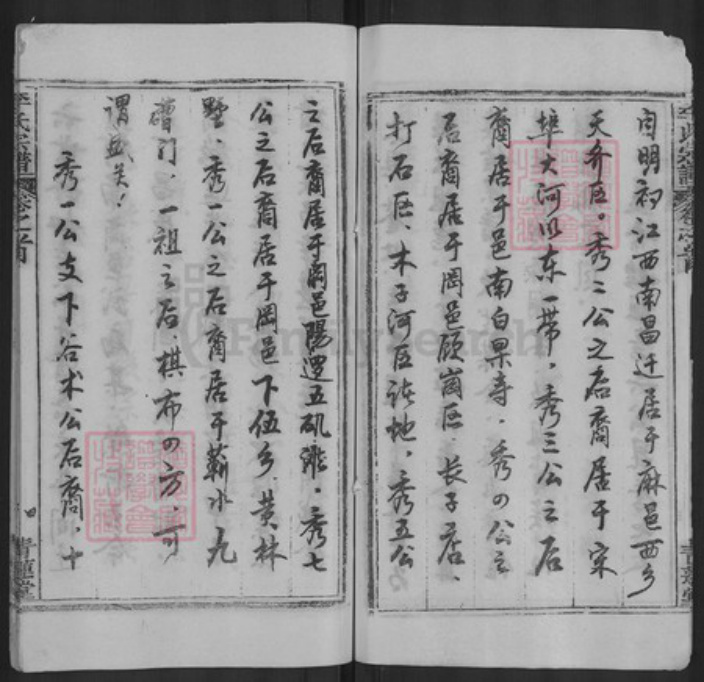 自明初江西南昌迁居于麻邑西乡
天齐区。秀二公之后裔居于宋
埠大河以东一带，秀三公之后
裔居于邑南白杲寺．秀四公之
后裔居于岡邑顾崗区．长子店、
打石区、木子河区诸地。秀五公
之后裔居于岡邑陽邏五矶．秀七
公之后裔居于岡邑下伍乡．黄林
墅、秀一公之后裔居于蘄水九
一祖之后，棋布四方，可
谓盛矣！
秀一公支下谷术公后裔，十
李氏宗譜
卷之首
四
青蓮堂
FamilySearch